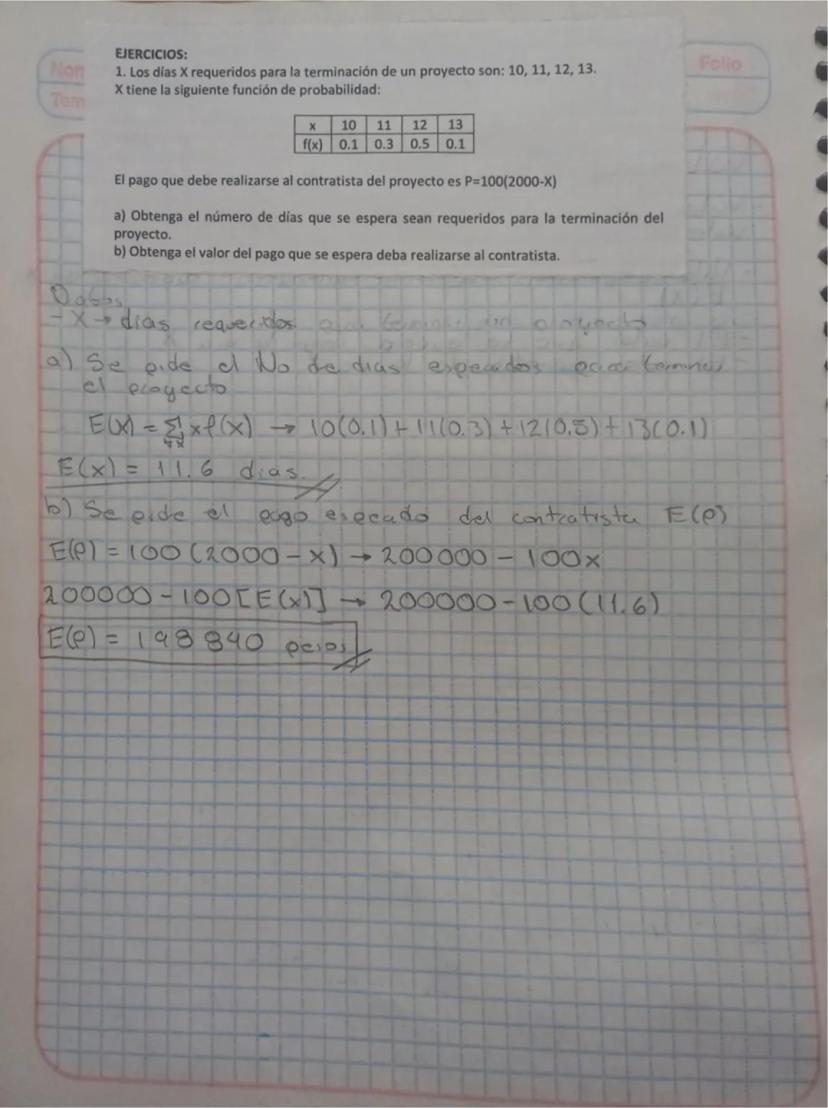 Nom
Tem
Folio
EJERCICIOS:
1. Los días X requeridos para la terminación de un proyecto son: 10, 11, 12, 13.
X tiene la siguiente función de probabilidad:
x 10 11 12 13
f(x) 0.1 0.3 0.5 0.1
El pago que debe realizarse al contratista del proyecto es P=100(2000-X)
a) Obtenga el número de días que se espera sean requeridos para la terminación del
proyecto.
b) Obtenga el valor del pago que se espera deba realizarse al contratista.
Datos
- X → días requeridos proyecto
a) Se pide el No de dias esperados para terminar
el proyecto
E(x) = Σ∀x xf(x) → 10(0.1) + 11(0.3) + 12(0.5) + 13(0.1)
E(x) = 11.6 dias
b) Se pide el pago esperado del contratista E(P)
E(P) = 100 (2000 - x) → 200000 - 100x
200000 - 100[E(x)] → 200000 - 100 (11.6)
E(P) = 198 840 pesos